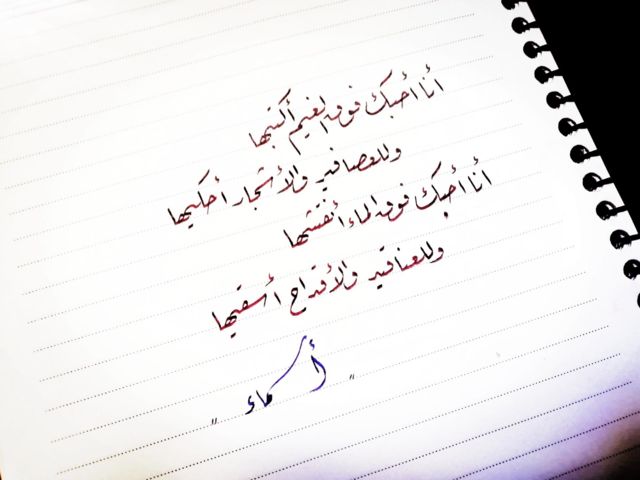 أنا أحبك فوق الغيم أكتبها
وللعصافير والأشجار أحكيها
أنا أحبك فوق الماء أنقشها
وللعناقيد والأقداح أسقيها
"أسماء"